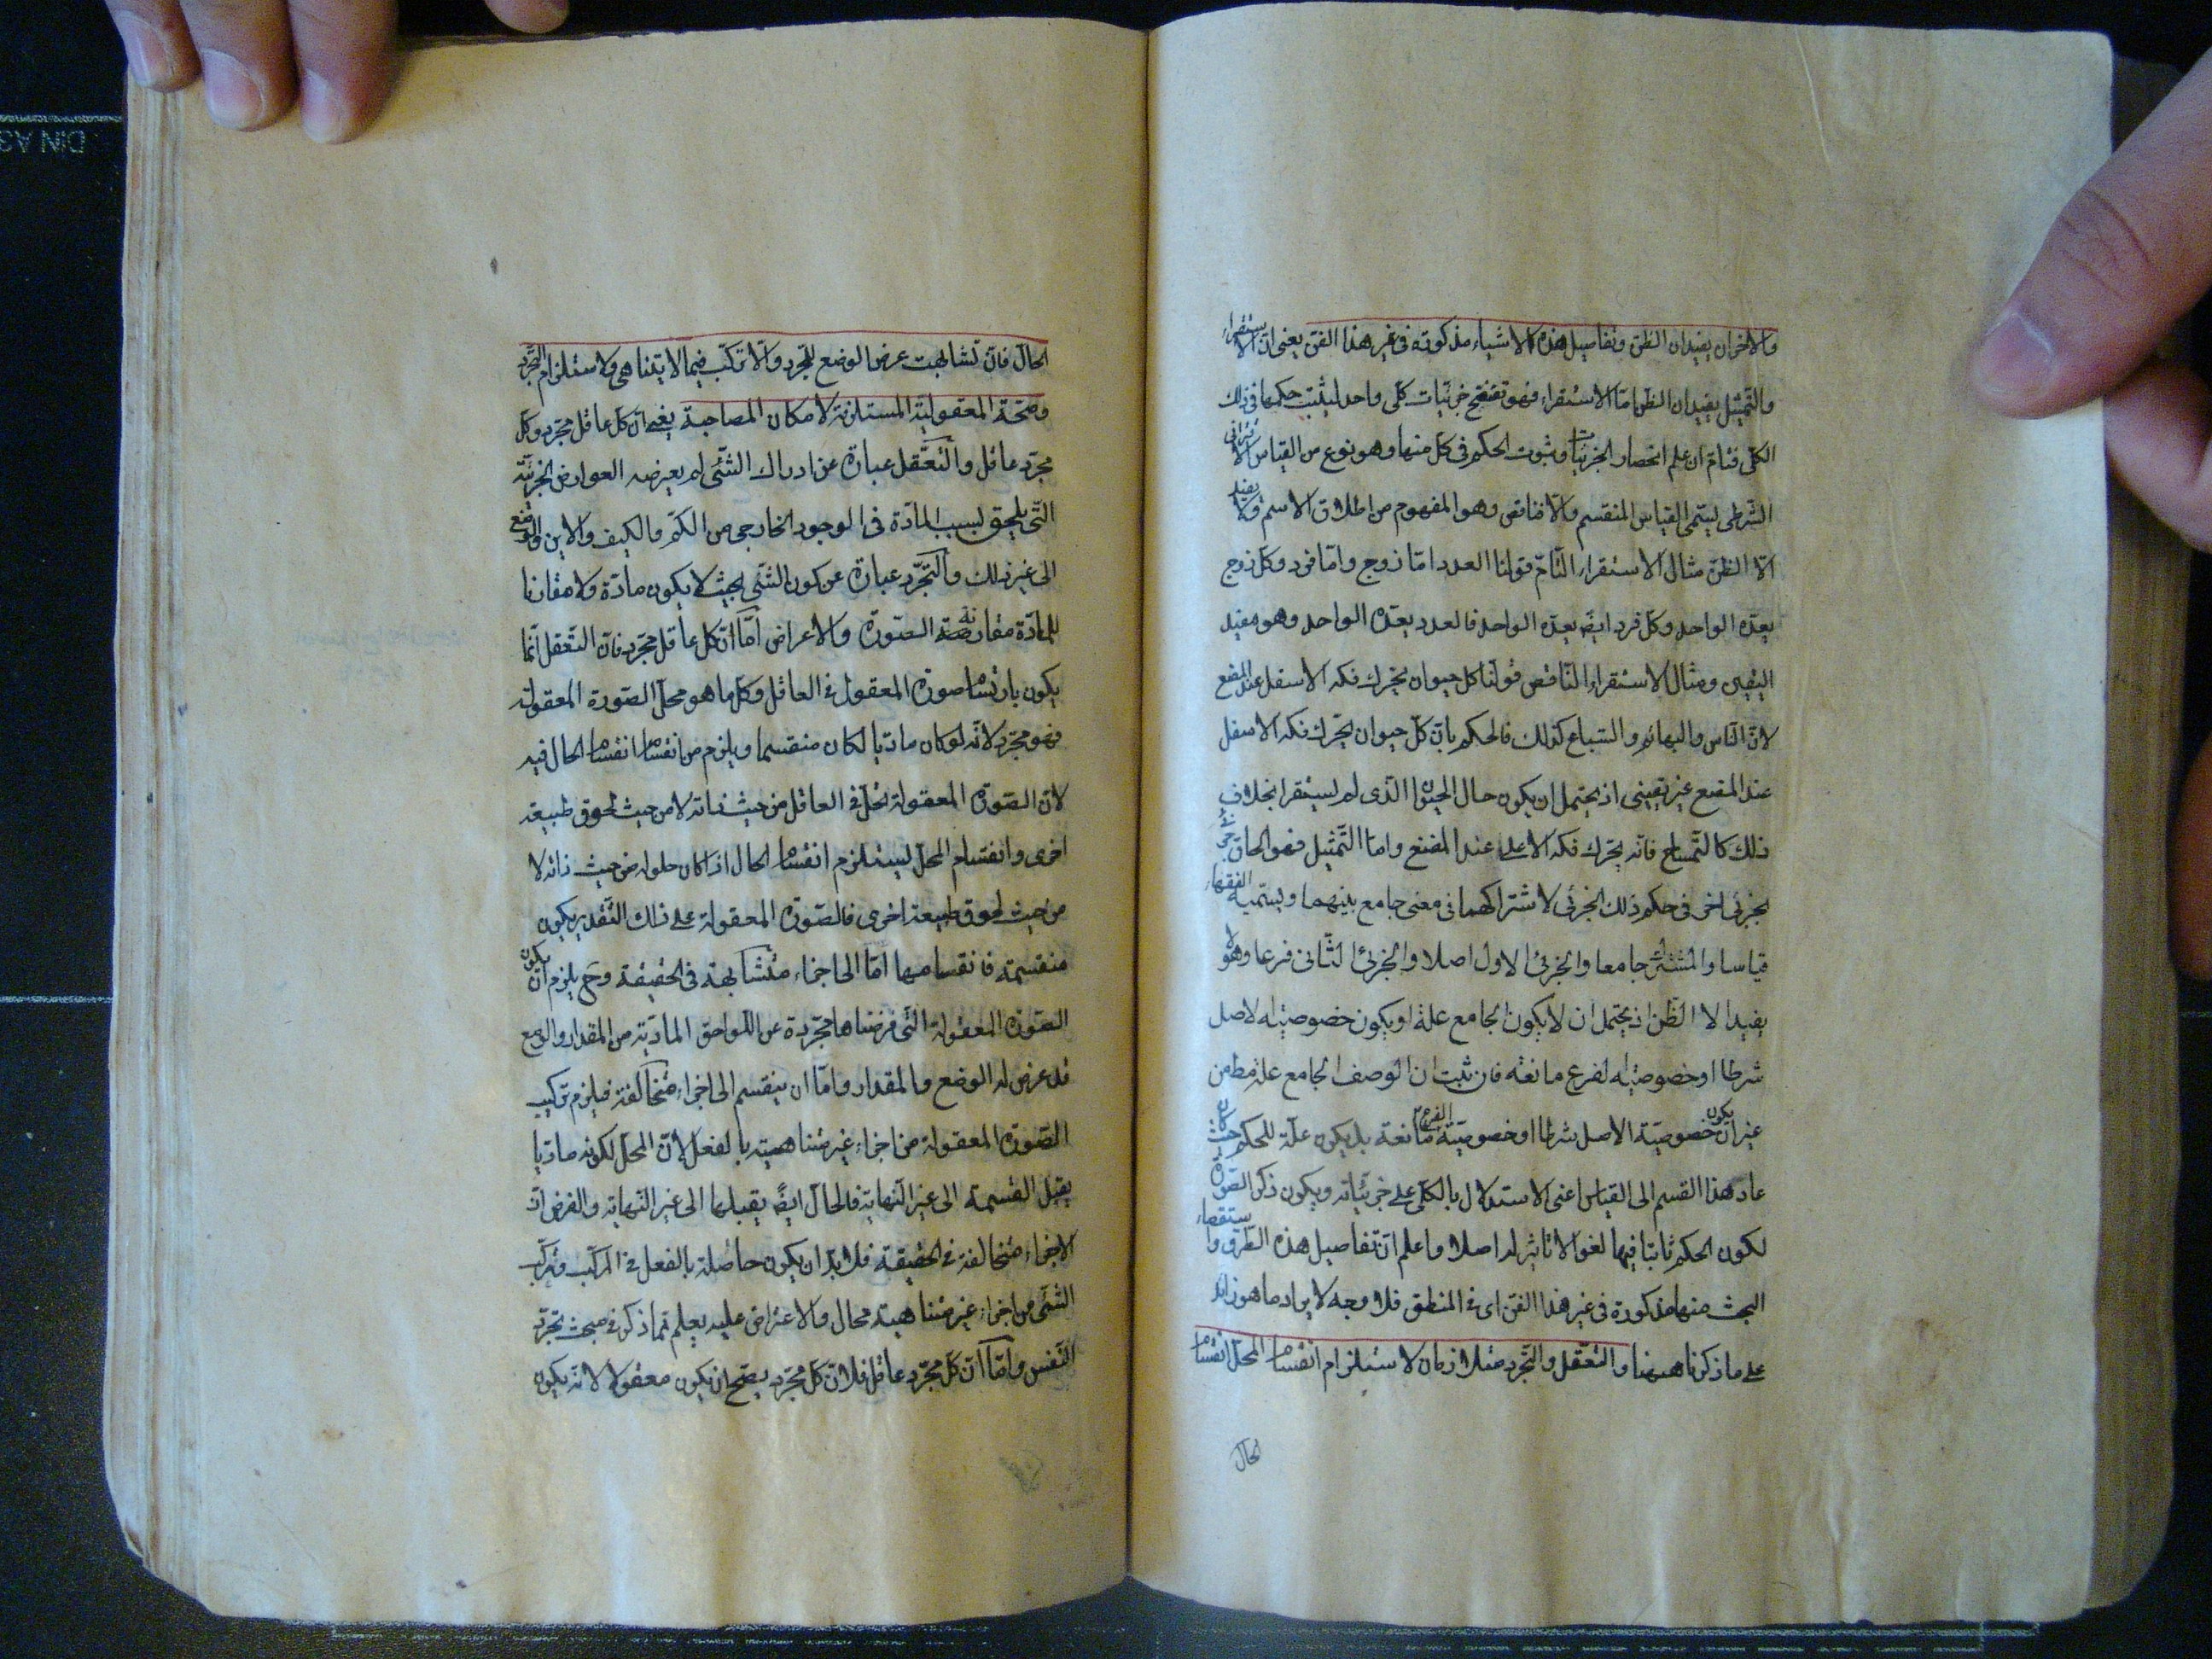 والاخران يفيدان الظن وتفاصيل هذه الاشياء مذكورة فى غير هذا الفن يعنى ان الاستقراء
والتمثيل يفيدان الظن اما الاستقراء فهو تفتح جزئيات كلى واحد ليثبت حكمها فى ذلك
الكلى فتام ان علم انحصار الجزئيات وثبوت الحكم فى كل منها وهو نوع من القياس الاقترانى
الشرطى ليسمى القياس المنقسم والا فناقص وهو المفهوم من اطلاق الاسم ولا يفيد
الا الظن مثال الاستقراء التام قولنا العدد اما زوج واما فرد وكل زوج
يعده الواحد وكل فرد ايضً يعده الواحد فالعدد يعده الواحد وهو مفيد
اليقين ومثال الاستقراء الناقص قولنا كل حيوان يحرك فكه الاسفل عند المضع
لان الناس والبهائم والسباع كذلك فالحكم بان كل حيوان يحرك فكه الاسفل
عند المضع غير يقينى اذ يحتمل ان يكون حال الحيوان الذى لم يستقرا بخلاف
ذلك كالتمساح فانه يحرك فكه الاعلى عند المضع واما التمثيل فهو الحاق جزئى
بجزئى اخر فى حكم ذلك الجزئى لاشتراكهما فى معنى جامع بينهما ويسميه الفقهاء
قياسا والمشترك جامعا والجزئى الاول اصلا والجزئى الثانى فرعا وهو لا
يفيد الا الظن اذ يحتمل ان لا يكون الجامع علة او يكون خصوصية الاصل
شرطا او خصوصية الفرع مانعة فان ثبت ان الوصف الجامع علة مط من
غير ان يكون خصوصية الاصل شرطا او خصوصية الفرع مانعة بل يكون علة للحكم حيث كان
عاد هذا القسم الى القياس اعنى الاستدلال بالكلى على جزئياته ويكون ذكر الصورة
لكون الحكم ثابتا فيها لغوا لا تاثير له اصلا واعلم ان تفاصيل هذه الطرق واستقصاء
البحث منها مذكورة فى غير هذا الفن اى فى المنطق فلا وجه لايراد ما هو زائد
على ما ذكرنا ههنا والتعقل والتجرد متلازمان لاستلزام انقسام المحل انقسام
الحال
الحال فان تشابهت عرض الوضع للمجرد والا تركب فيما لا يتناهى ولاستلزام التجرد
وصحة المعقولية المستلزمة لامكان المصاحبة يعنى ان كل عاقل مجرد وكل
مجرد عاقل والتعقل عبارة عن ادراك الشئ لم يعرضه العوارض الجزئية
التى يلحق بسبب المادة فى الوجود الخارجى من الكم والكيف والاين والوضع
الى غير ذلك والتجرد عبارة عن كون الشئ بحيث لا يكون مادة ولا مقارنا
للمادة مقارنة الصورة والاعراض اما ان كل عاقل مجرد فان التعقل انما
يكون بارتسام صورة المعقول فى العاقل وكل ما هو محل الصورة المعقولة
فهو مجرد لانه لو كان ماديا لكان منقسما ويلزم من انقسام انقسام الحال فيه
لان الصورة المعقولة تحل فى العاقل من حيث ذاته لا من حيث لحوق طبيعة
اخرى وانقسام المحل ليستلزم انقسام الحال اذا كان حلوله من حيث ذاته لا
من حيث لحوق طبيعة اخرى فالصورة المعقولة على ذلك التقدير يكون
منقسمة فانقسامها اما الى اجزاء متشابهة فى الحقيقة وح يلزم ان يكون
الصورة المعقولة التى فرضناها مجردة عن اللواحق المادية من المقدار والوضع
قد عرض له الوضع والمقدار واما ان ينقسم الى اجزاء متخالفة فيلزم تركيب
الصورة المعقولة من اجزاء غير متناهية بالفعل لان المحل لكونه ماديا
يقبل القسمة الى غير النهاية فالحال ايضً يقبلها الى غير النهاية والفرض ان
الاجزاء متخالفة فى الحقيقة فلا بد ان يكون حاصلة بالفعل فى المركب وتركب
الشئ من اجزاء غير متناهية محال والاعتراض عليه يعلم مما ذكر فى مبحث تجرد
النفس واما ان كل مجرد عاقل فلان كل مجرد يصح ان يكون معقولا لانه يكون